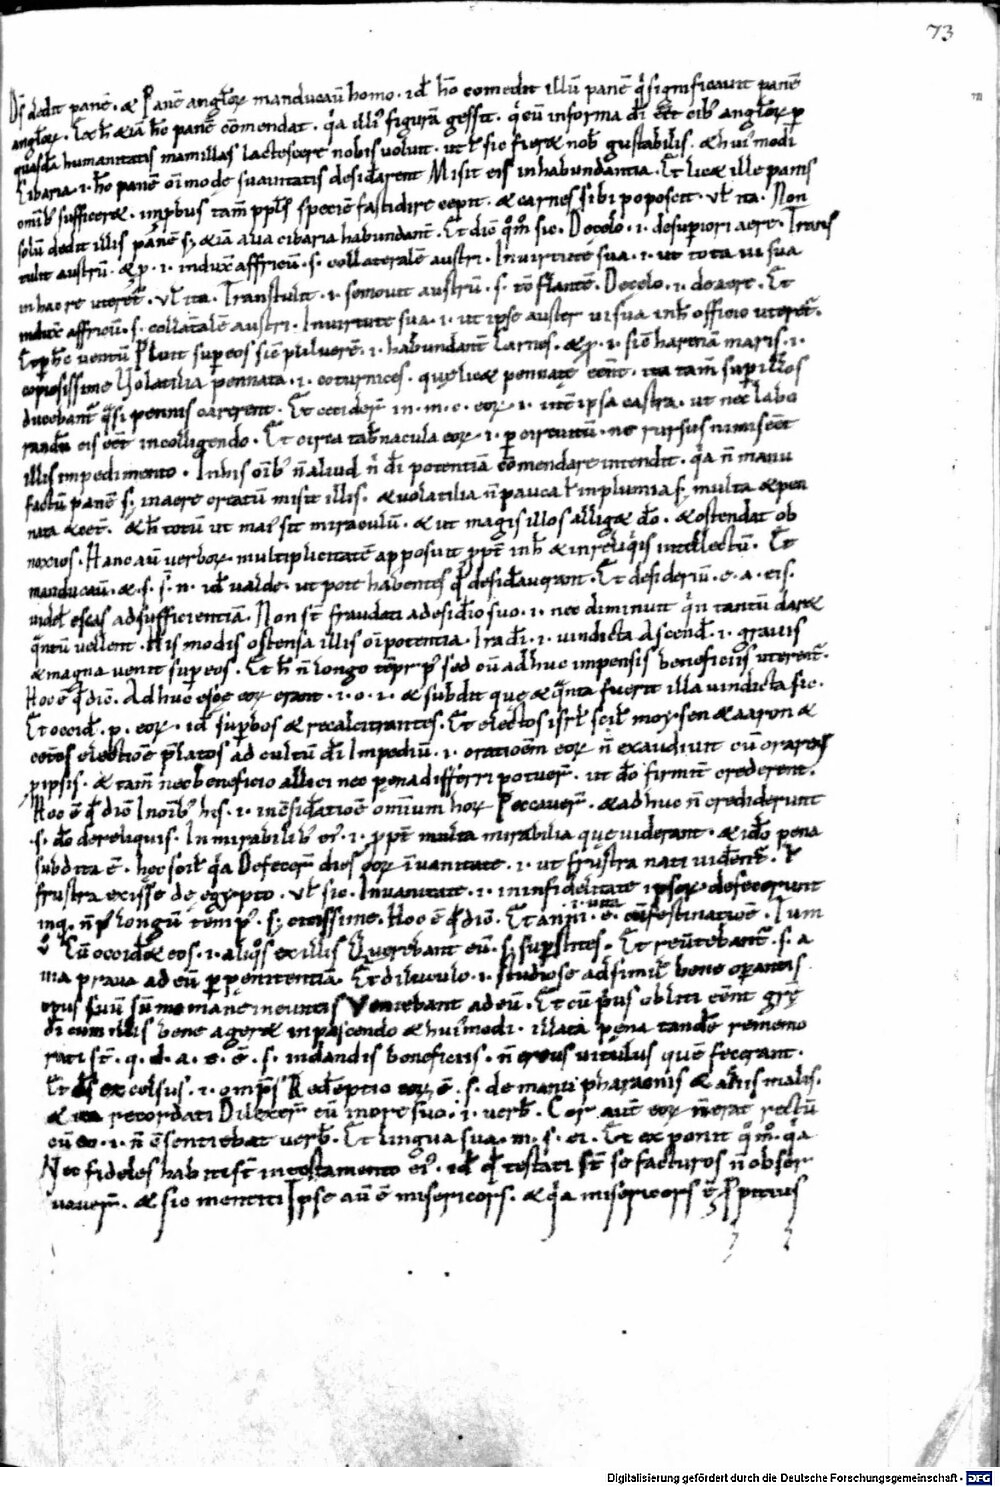 73
Dn̄s dedit panē. & Panē anglorꝝ manducaū homo. id̄ h̄o comedit illū panē significavit panē
anglorꝝ. h̄ &iā panē cōmendat. q̇a illi figurā gessit. q̇ eū in forma d̄i eēt oib; anglorꝝ p
quasdā humanitatis mamillas lactescere nobis voluit. ut sic fier& nob̄ gustabilis. & hui' modi
Cibaria .i. panē oīmode suavitatis desid̄arent Misit eis in habundantia. Et lic& ille panis
omīb; sufficer&. impbus tam̄ ppl's speciē fastidire cepit. & carnes sibi poposcit. ul' ita. Non
solū dedit illis panē s; &iā alia cibaria habundant̄. Et diō q̊m̊ sic. De celo .i. de superiori aere. Trans
tulit austrū. & p̄. .i. indux̄ affricū .s. collateralē austri. In virtute sua .i. ut tota vi sua
in hac re uteret̄. ul' ita. Transtulit .i. semovit austrū .s. flantē. De celo .i. de aere. Et
indux̄ affricū .s. collat̄alē austri. In virtute sua .i. ut ipse auster vi sua in h̄ officio uteret̄.
Et p h̄c ventū Pluit sup eos sic pulverē .i. habundant̄ Carnes. & p̄. .i. sic̄ harenā maris .i.
copiosissime Volatilia pennata .i. coturnices. que lic& pennate eēnt. ita tam̄ sup illos
ducebant̄ q̇si pennis carerent. Et cecider̄ in .m. c. eorꝝ .i. int̄ ipsa castra. ut nec labo
randū eis eēt in colligendo. Et circa tab̄nacula eorꝝ .i. p circuitū. ne rursus nimis eēt
illis impedimento. In his oīb; n̄ aliud n̄ d̄i potentiā cōmendare intendit. q̇a n̄ manu
factū panē s; in aere creatū misit illis. & volatilia n̄ pauca l' inplumia s; multa & pen
nata &cēt. & h̄ totū ut mai' sit miraculū. & ut magis illos allig& dō. & ostendat ob
noxios. Hanc aū verborꝝ multiplicitatē apposuit ppt̄ in h̄ & in reliq̇is intellectū. Et
manducaū. & .s. s̄. n. id̄ valde. ut pote habentes q̄d desid̄averant. Et desideriū .e. a. eis.
videl' escas ad sufficientiā. Non st̄ fraudati a desid̄io suo .i. nec diminuit q̇n tantū dar&
q̇ntū vellent. His modis ostensa illis oīpotentia. Ira d̄i .i. vindicta Ascend̄ .i. gravis
& magna venit sup eos. Et h̄ n̄ longo tēpr̄ p' sed cū adhuc impensis beneficiis uterent̄.
Hoc ē q̄d diō. Adhuc esce eorꝝ erant .i. o. i. & subdit que & q̇nta fuerit illa vindicta sic.
Et occid̄. p. eorꝝ. id̄ superbos & recalcitrantes. Et electos isrl' scil' moysen & aaron &
cet̄os electiōe p̄latos ad cultū d̄i Impediū .i. oratioēm eorꝝ n̄ exaudivit cū orarent
p ipsis. & tam̄ nec beneficio allici nec pena differri potuer̄. ut dō firmit̄ crederent.
Hoc ē q̄d diō In oīb; his .i. in cēsid̄atiōe omnium horꝝ Peccaver̄. & adhuc n̄ crediderunt
.s. dō de reliquis. In mirabilib; ei' .i. ppt̄ multa mirabilia que viderant. & idō pena
subdita ē. hec scil' q̇a Defecer̄ dies eorꝝ ī vanitate .i. ut frustra nati vid̄ent̄. l'
frustra exisse de egypto. ul' sic. In vanitate .i. in infidelitate ipsorꝝ defecerunt
inq̄. n̄ p' longū temp'. s; citissime. Hoc ē q̄d diō. Et anni .e. cū festinatiōe. Cum
Cū occid& eos .i. aliq̊s ex illis Querebant eū. s; supstites. Et revtebant̄ .s. a
via prava ad eū p penitentiā. Et diluculo .i. studiose ad simil' bene operantis
opus suū sūmo mane ineuntis Veniebant ad eū. Et cū p̄us obliti eēnt
d̄i cum illis bene ager& in pascendo & hui' modi. illata pena tandē rememo
rati st̄. q. d. a. e. ē. .s. in dandis beneficiis. n̄ vitulus quē fecerant.
Et d̄s excelsus .i. omp̄s Redēptio eorꝝ ē. .s. de manu pharaonis & aliis malis.
& ita recordati Dilexer̄ eū in ore suo .i. verb̄. Cor aut̄ eorꝝ n̄ erat rectū
cū eo .i. n̄ c̄sentiebat verb̄. Et lingua sua .m. s. ei. Et exponit q̊m̊. q̇a
Nec fideles habiti st̄ in testamento ei'. id̄ q̄d testati st̄ se facturos n̄ obser
vaver̄. & sic mentiti Ipse aū ē misericors. & q̇a misericors ē Ppitius
Digitalisierung gefördert durch die Deutsche Forschungsgemeinschaft - DFG